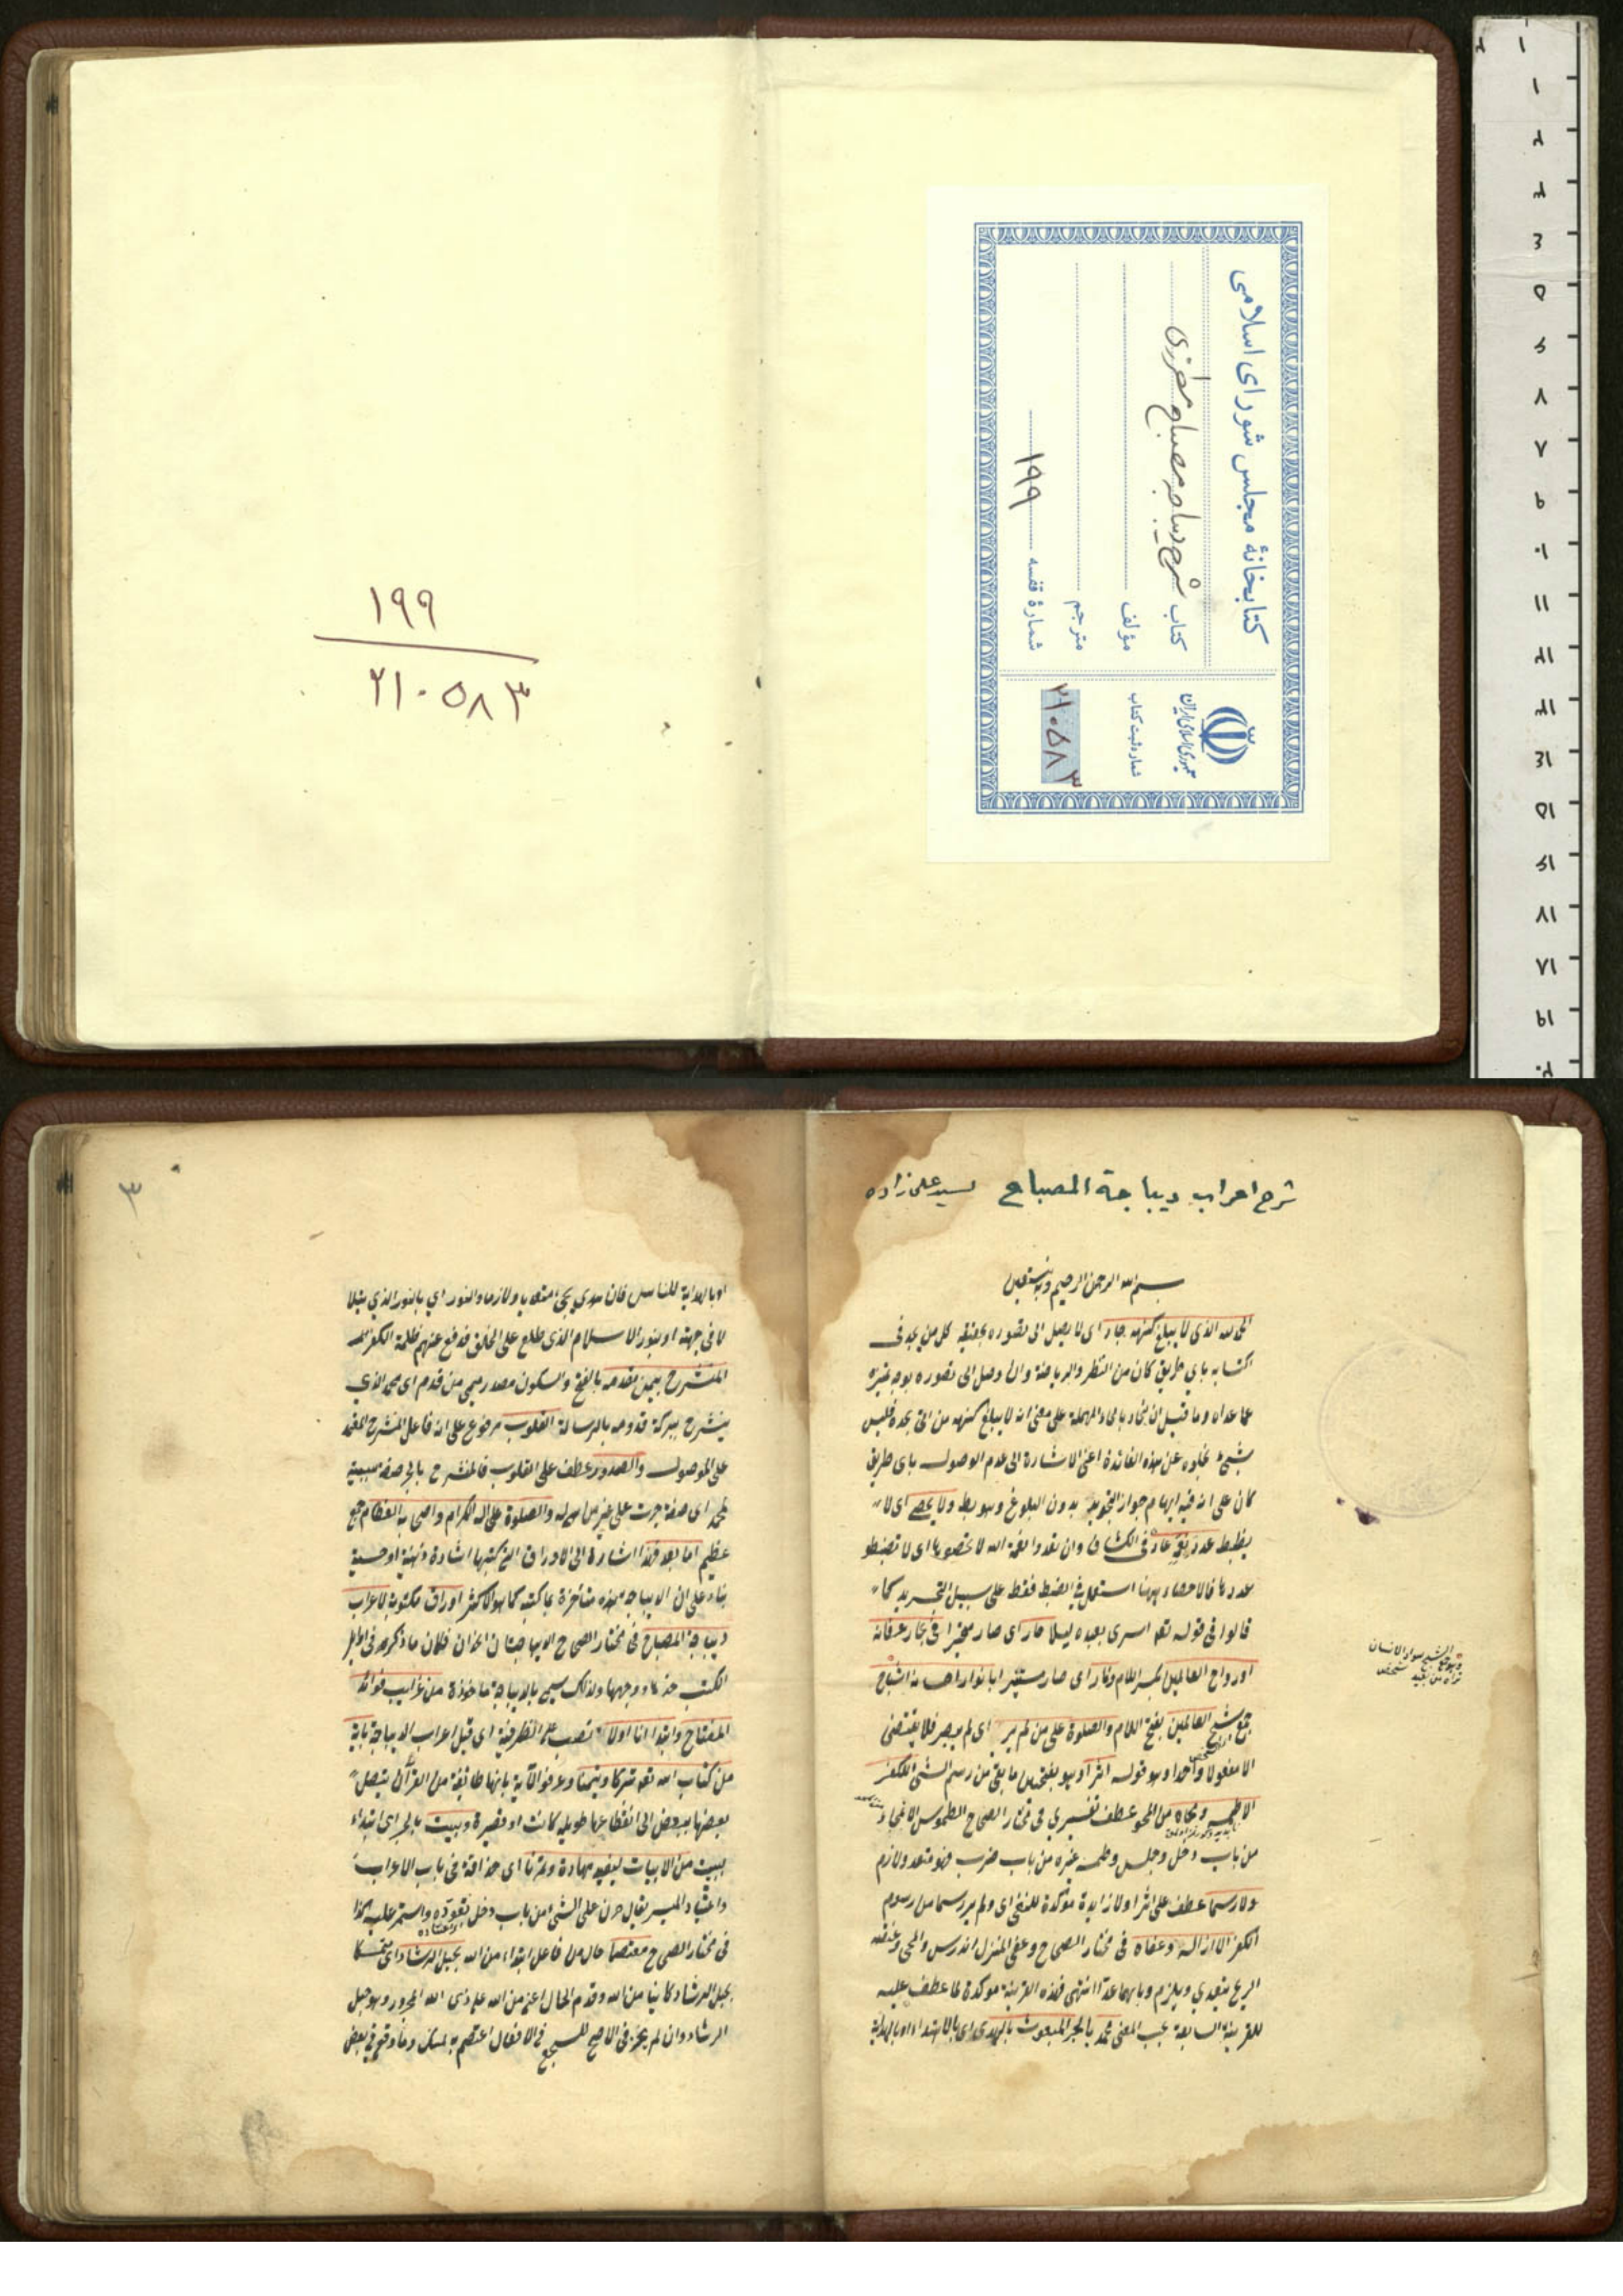 كتابخانهٔ مجلس شورای اسلامی
كتاب شرح ديباجه مصباح مطرزی
مؤلف
مترجم
شمارهٔ قفسه ۱۹۹
جمهوری اسلامی ایران
شماره ثبت کتاب
۲۱۰۵۸۳
۱۹۹
۲۱۰۵۸۳
شرح اعراب ديباجة المصباح لسيد علی زاده
بسم الله الرحمن الرحيم وبه نستعين
الحمد لله الذي لا يبلغ كنهه جاد اى لا يصل الى تصوره بحقيقته كل من يجد فى
اكتسابه باي طريق كان من النظر والرياضة وان وصل الى تصوره بوجه تميزه
عما عداه وما قيل ان بحاد بالحاء المهملة على معنى انه لا يبلغ كنهه من الى بحده فليس
بشئ لخلوه عن هذه الفائدة اعنى الاشارة الى عدم الوصول باى طريق
كان على انه فيه ايهام جواز التجويد بدون البلوغ وهو بط ولا يحصى اى لا
يضبط عدد نعمه عاد فى الكشاف وان تعدوا نعمة الله لا تحصوها اى لا تضبطو
عددها فالاحصاء ههنا استعمل فى الضبط فقط على سبيل التجريد كما
قالوا فى قوله تعالى اسرى بعبده ليلا حار اى صار متحيرا فى بحار عرفانه
ارواح العالمين بكسر اللام ونار اى صار مستنيرا بانوار احسانه اشباح
جمع شبح العالمين بفتح اللام والصلوة على من لم ير اى لم يبصر فلا يقتضى
الا مفعولا واحدا وهو قوله اثرا وهو بفتحتين ما بقى من رسم الشئ للكفر
الا طمسه ومحاه من المحو عطف تفسيرى فى مختار الصحاح الطموس الانمحاء
من باب دخل وجلس وطمسه غيره من باب ضرب فهو متعد ولازم
ولا رسما عطف على اثرا ولا زايدة مؤكدة للنفى اى ولم ير رسما من رسوم
الكفر الا ازاله وعفاه فى مختار الصحاح وعفى المنزل اندرس وامحى وعفته
الريح يتعدي ويلزم وبابهما عدا انتهى فهذه القرينة مؤكدة لما عطف عليه
للقرينة السابعة بحسب المعنى محمد بالجر المبعوث بالهدى اى بالاهتداء او بالهداية
۳
او بالهداية للناس فان هدى يجئ متعديا ولازما والنور اي بالنور الذي يتلا
لا فى جبهته او بنور الاسلام الذى طلع على الخلق فدفع عنهم ظلمة الكفر
المنشرح بيمن مقدمه بالفتح والسكون مصدر ميمي من قدم اى محمد الذي
ينشرح ببركة قدومه بالرسالة القلوب مرفوع على انه فاعل المنشرح المعتمد
على الموصول والصدور عطف على القلوب فالمنشرح بالجر صفة سببية
لمحمد اى صفة جرت على غير من هى له والصلوة على اله الكرام واصحابه العظام جمع
عظيم اما بعد فهذا اشارة الى الاوراق التى كتبها اشارة ذهنية او حسية
بناء على ان الديباجة هذه متاخرة عما كتب كما هو الاكثر اوراق مكتوبة لاعراب
ديباجة المصباح فى مختار الصحاح الديباجتان الخدان فكان ما ذكروه فى اوايل
الكتب خدها ووجهها ولذلك سمى بالديباجة ماخوذة من غرايب فوائد
المفتاح وابتدأنا اولا نصب على الظرفية اى قبل اعراب الديباجة باية
من كتاب الله تعالى تبركا وتيمنا وعرفوا الآية بانها طائفة من القرآن يتصل
بعضها ببعض الى انقطاعها طويلة كانت او قصيرة وببيت بالجر اى ابتداء
ببيت من الابيات ليفيد مهارة ومرنا اى حذاقة فى باب الاعراب
واعتيادا لميسر يقال مرن على الشئ من باب دخل تعوده واستمر عليه كذا
فى مختار الصحاح معتصما حال من فاعل ابتداء من الله بحبل الرشاد اى متمسكا
بحبل الرشاد كاينا من الله وقدم الحال اعنى من الله على ذى الحال المجرور وهو حبل
الرشاد وان لم يجز فى الاصح للسجع فى الافعال اعتصم به تمسك وما وقع فى بعض